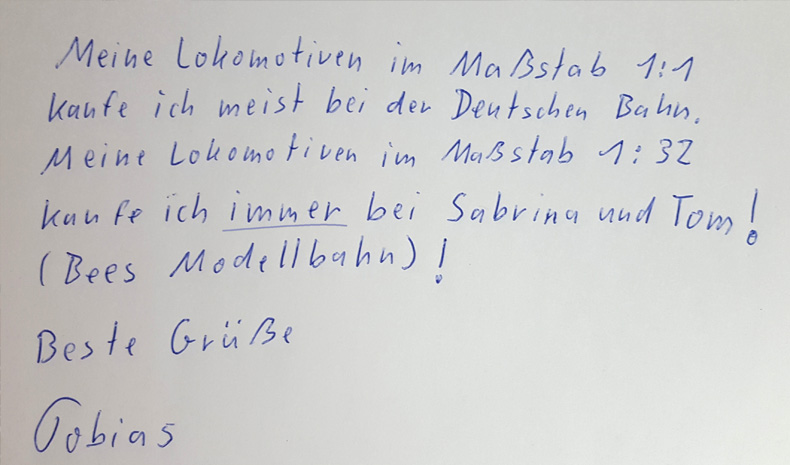 Meine Lokomotiven im Maßstab 1:1
kaufe ich meist bei der Deutschen Bahn.
Meine Lokomotiven im Maßstab 1:32
kaufe ich immer bei Sabrina und Tom!
(Bees Modellbahn)!
Beste Grüße
Tobias